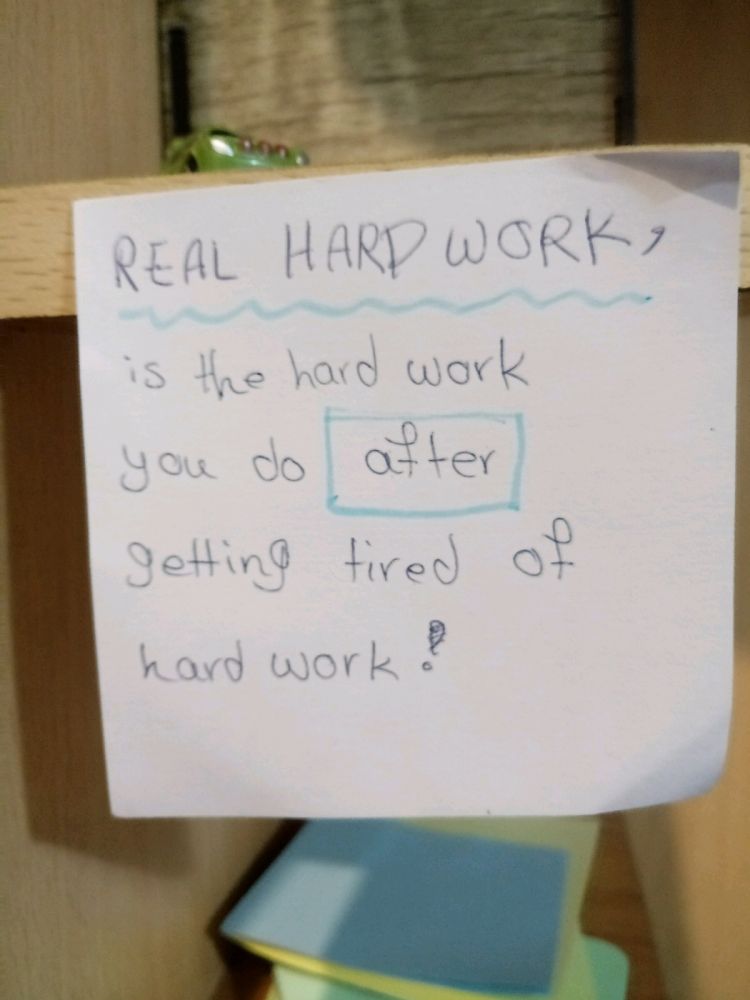 REAL HARD WORK,
is the hard work
you do after
getting tired of
hard work!